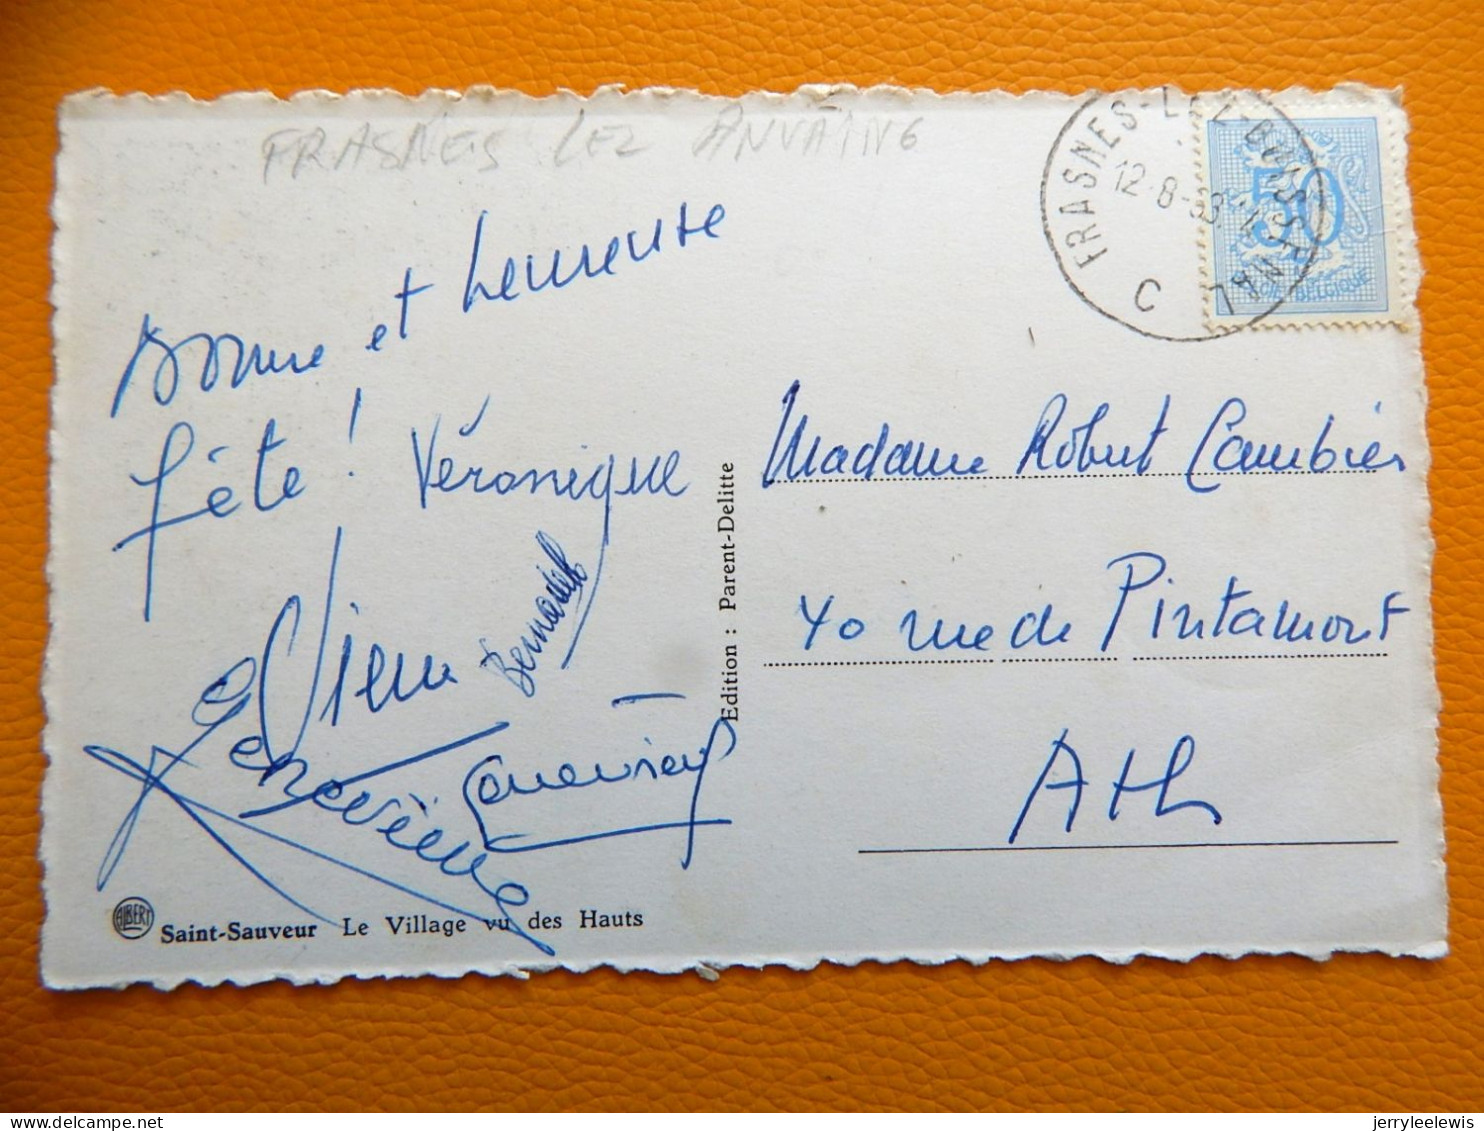 FRASNES LEZ ANVAING
FRASNES-LEZ-BUISSENAL
12-8-53
C
50
BELGIQUE
Bonne et heureuse
fête !
Véronique
Bernadette
Geneviève
Madame Robert Cambier
40 rue de Pintamont
Ath
Edition : Parent-Delitte
ALBERT
Saint-Sauveur Le Village vu des Hauts
jerryleelewis